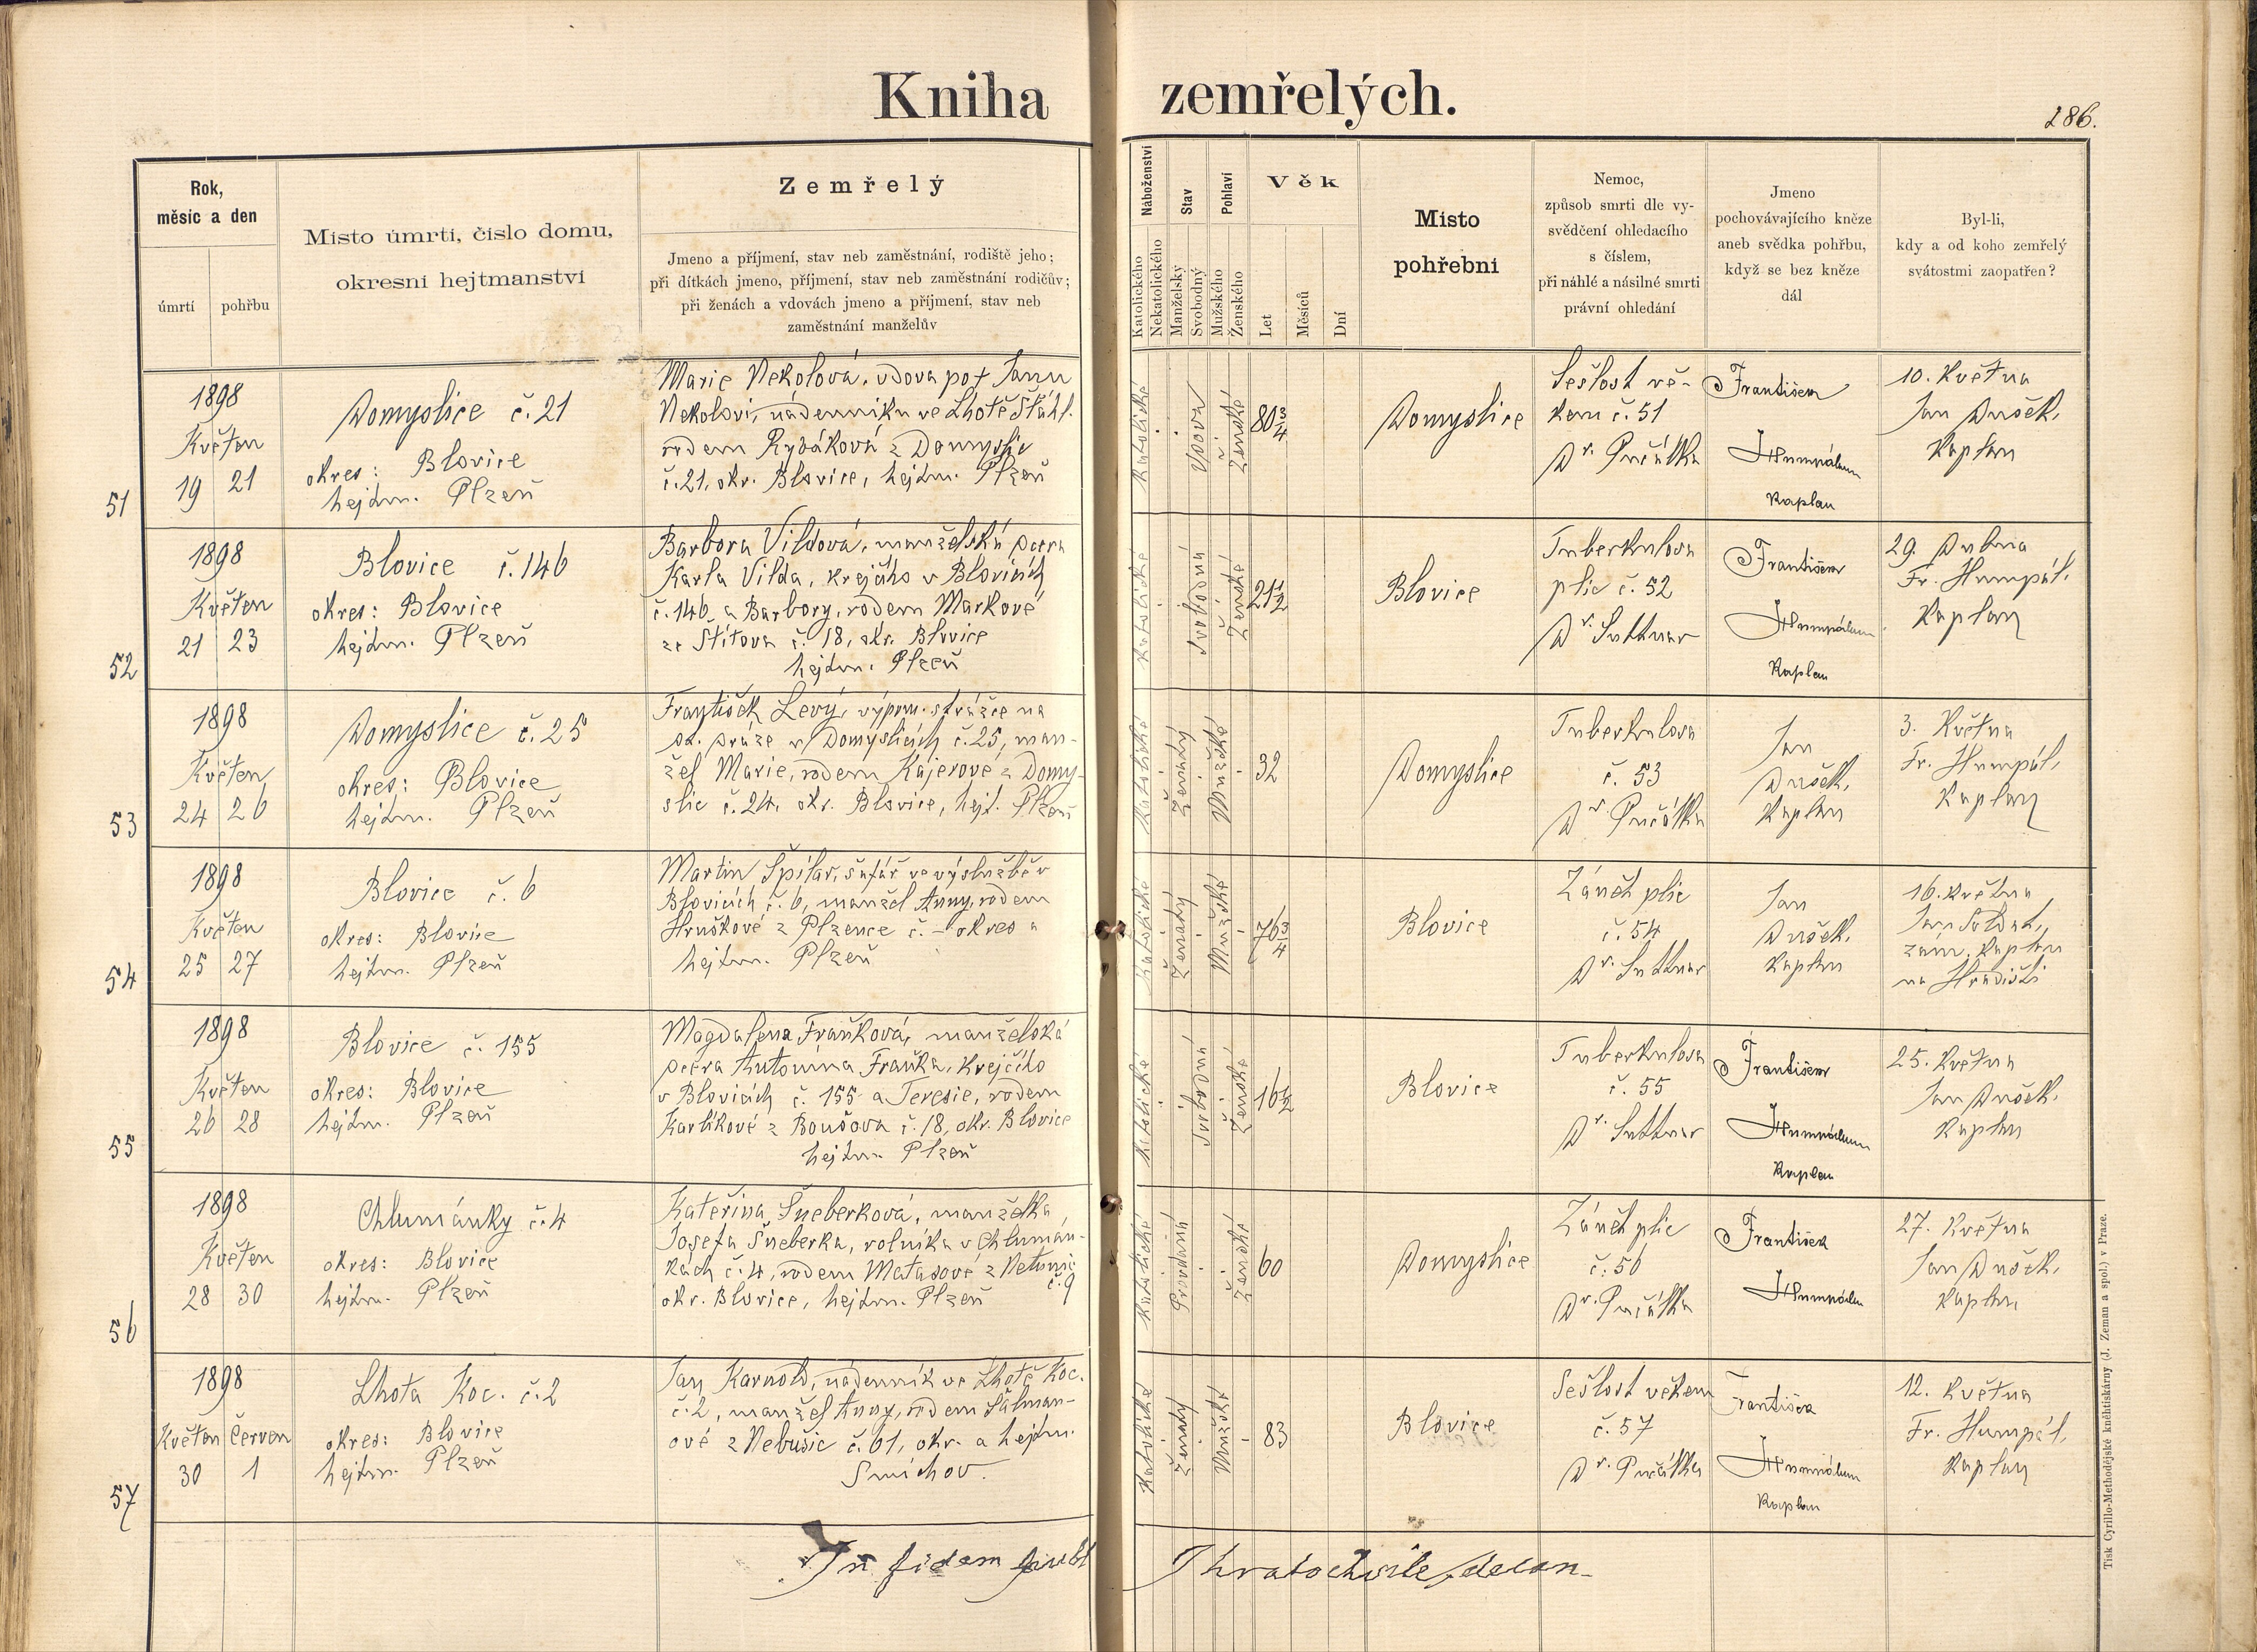 Kniha zemřelých.
186.
Rok,
měsíc a den
úmrtí
pohřbu
Místo úmrtí, číslo domu,
okresní hejtmanství
Zemřelý
Jmeno a příjmení, stav neb zaměstnání, rodiště jeho;
při dítkách jmeno, příjmení, stav neb zaměstnání rodičův;
při ženách a vdovách jmeno a příjmení, stav neb
zaměstnání manželův
Náboženství
Katolického
Nekatolického
Stav
Manželský
Svobodný
Pohlaví
Mužského
Ženského
Věk
Let
Měsíců
Dní
Místo
pohřební
Nemoc,
způsob smrti dle vy-
svědčení ohledacího
s číslem,
při náhlé a násilné smrti
právní ohledání
Jmeno
pochovávajícího kněze
aneb svědka pohřbu,
když se bez kněze
dál
Byl-li,
kdy a od koho zemřelý
svátostmi zaopatřen?
51
1898
Květen
19 21
Domyslice č. 21
okres: Blovice
hejtm. Plzeň
Marie Nekolová, vdova po † Janu
Nekolovi, nádenníku ve Lhotě Štáhl.
rodem Rybáková z Domyslic
č. 21, okr. Blovice, hejtm. Plzeň
Katolické
Vdova
Ženské
80 3/4
Domyslice
Sešlost vě-
kem č. 51
Dr. Pučálka
František
Humpál
Kaplan
10. Května
Jan Dušek,
Kaplan
52
1898
Květen
21 23
Blovice č. 146
okres: Blovice
hejtm. Plzeň
Barbora Vildová, manželská dcera
Karla Vilda, krejčího v Blovicích
č. 146, a Barbory, rodem Markové
ze Štítova č. 18, okr. Blovice
hejtm. Plzeň
Katolické
Svobodná
Ženské
21 1/2
Blovice
Tuberkulosa
plic č. 52
Dr. Suttnar
František
Humpál
Kaplan
29. Dubna
Fr. Humpál,
Kaplan
53
1898
Květen
24 26
Domyslice č. 25
okres: Blovice
hejtm. Plzeň
František Levý, výpom. strážce na
dráze v Domyslicích č. 25, man-
žel Marie, rodem Kajerové z Domy-
slic č. 24, okr. Blovice, hejt. Plzeň
Katolické
Ženatý
Mužské
32
Domyslice
Tuberkulosa
č. 53
Dr. Pučálka
Jan
Dušek,
Kaplan
3. Května
Fr. Humpál,
Kaplan
54
1898
Květen
25 27
Blovice č. 6
okres: Blovice
hejtm. Plzeň
Martin Špilar, šafář ve výslužbě v
Blovicích č. 6, manžel Anny, rodem
Hruškové z Plzence č. – okres a
hejtm. Plzeň
Katolické
Ženatý
Mužské
76 3/4
Blovice
Zánět plic
č. 54
Dr. Suttnar
Jan
Dušek,
Kaplan
16. Května
Jan
zám. Kaplan
na Hradišti
55
1898
Květen
26 28
Blovice č. 155
okres: Blovice
hejtm. Plzeň
Magdalena Fraňková, manželská
dcera Antonína Fraňka, Krejčího
v Blovicích č. 155 a Teresie, rodem
Karlíkové z Boušova č. 18, okr. Blovice
hejtm. Plzeň
Katolické
Svobodná
Ženské
16 1/2
Blovice
Tuberkulosa
č. 55
Dr. Suttnar
František
Humpál
Kaplan
25. Května
Jan Dušek,
Kaplan
56
1898
Květen
28 30
Chlumánky č. 4
okres: Blovice
hejtm. Plzeň
Kateřina Šneberková, manželka
Josefa Šneberka, rolníka v Chlumán-
kách č. 4, rodem Matasové z Netunic
č. 9
okr. Blovice, hejtm. Plzeň
Katolické
Provdaná
Ženské
60
Domyslice
Zánět plic
č. 56
Dr. Pučálka
František
Humpál
27. Května
Jan Dušek,
Kaplan
57
1898
Květen Červen
30 1
Lhota Koc. č. 2
okres: Blovice
hejtm. Plzeň
Jan Karnold, nádenník ve Lhotě Koc.
č. 2, manžel Anny, rodem Sálman-
ové z Nebušic č. 61, okr. a hejtm.
Smíchov.
Katolické
Ženatý
Mužské
83
Blovice
Sešlost věkem
č. 57
Dr. Pučálka
František
Humpál
Kaplan
12. Května
Fr. Humpál,
Kaplan
In fidem
Kratochvíle, decan
Tisk Cyrillo-Methodějské knihtiskárny (J. Zeman a spol.) v Praze.